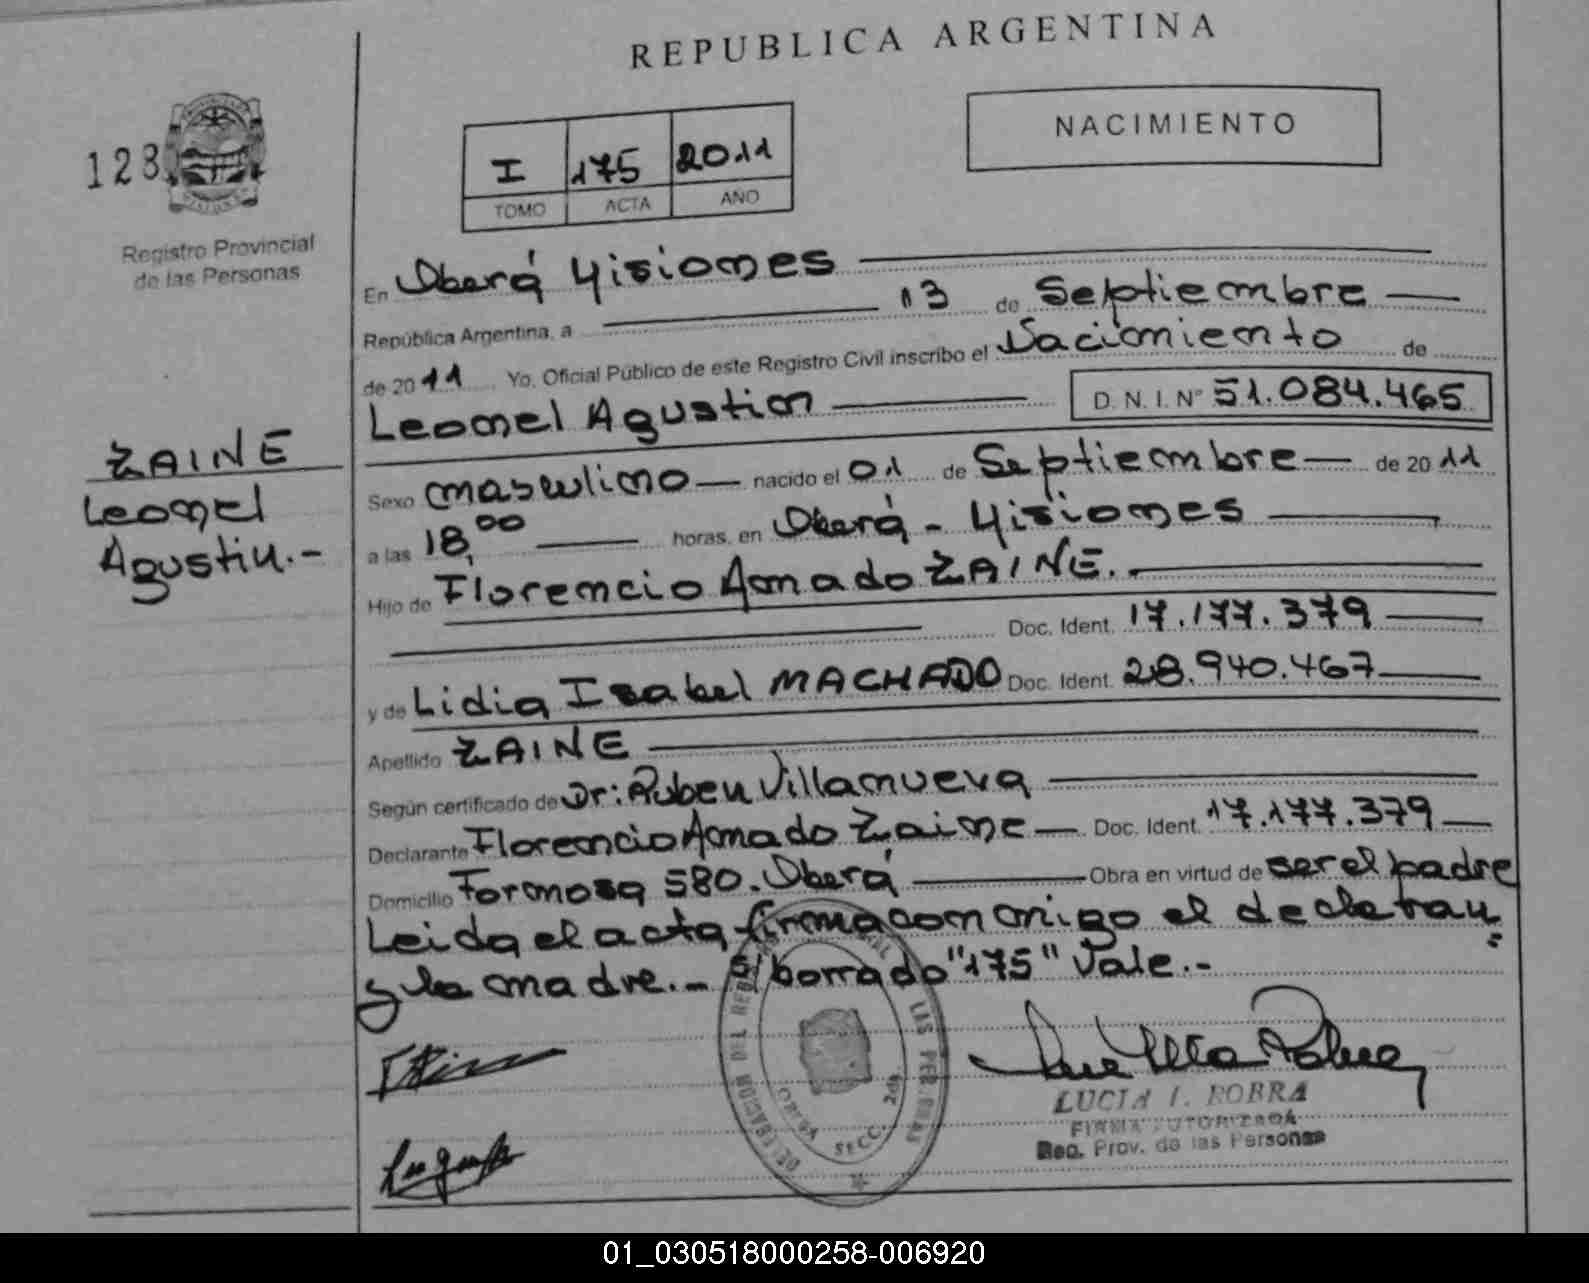 REPUBLICA ARGENTINA
128
Registro Provincial
de las Personas
NACIMIENTO
I 175 2011
TOMO ACTA AÑO
En Oberá Misiones
República Argentina, a 13 de Septiembre
de 2011 Yo, Oficial Público de este Registro Civil inscribo el Nacimiento de
Leonel Agustin D. N. I. N° 51.084.465
ZAINE
Leonel
Agustin.-
Sexo masculino nacido el 01 de Septiembre de 2011
a las 18,00 horas, en Oberá - Misiones
Hijo de Florencio Amado ZAINE.
Doc. Ident. 17.177.379
y de Lidia Isabel MACHADO Doc. Ident. 28.940.467
Apellido ZAINE
Según certificado de Dr: Ruben Villanueva
Declarante Florencio Amado Zaine Doc. Ident. 17.177.379
Domicilio Formosa 580. Oberá Obra en virtud de ser el padre
Leida el acta firma conmigo el declaran
y la madre.- S/borrado "175" Vale.-
DELEGACION DEL LAS PERSONAS
OBERA SECC. 2da.
LUCIA I. BOBRA
FIRMA AUTORIZADA
Reg. Prov. de las Personas
01_030518000258-006920